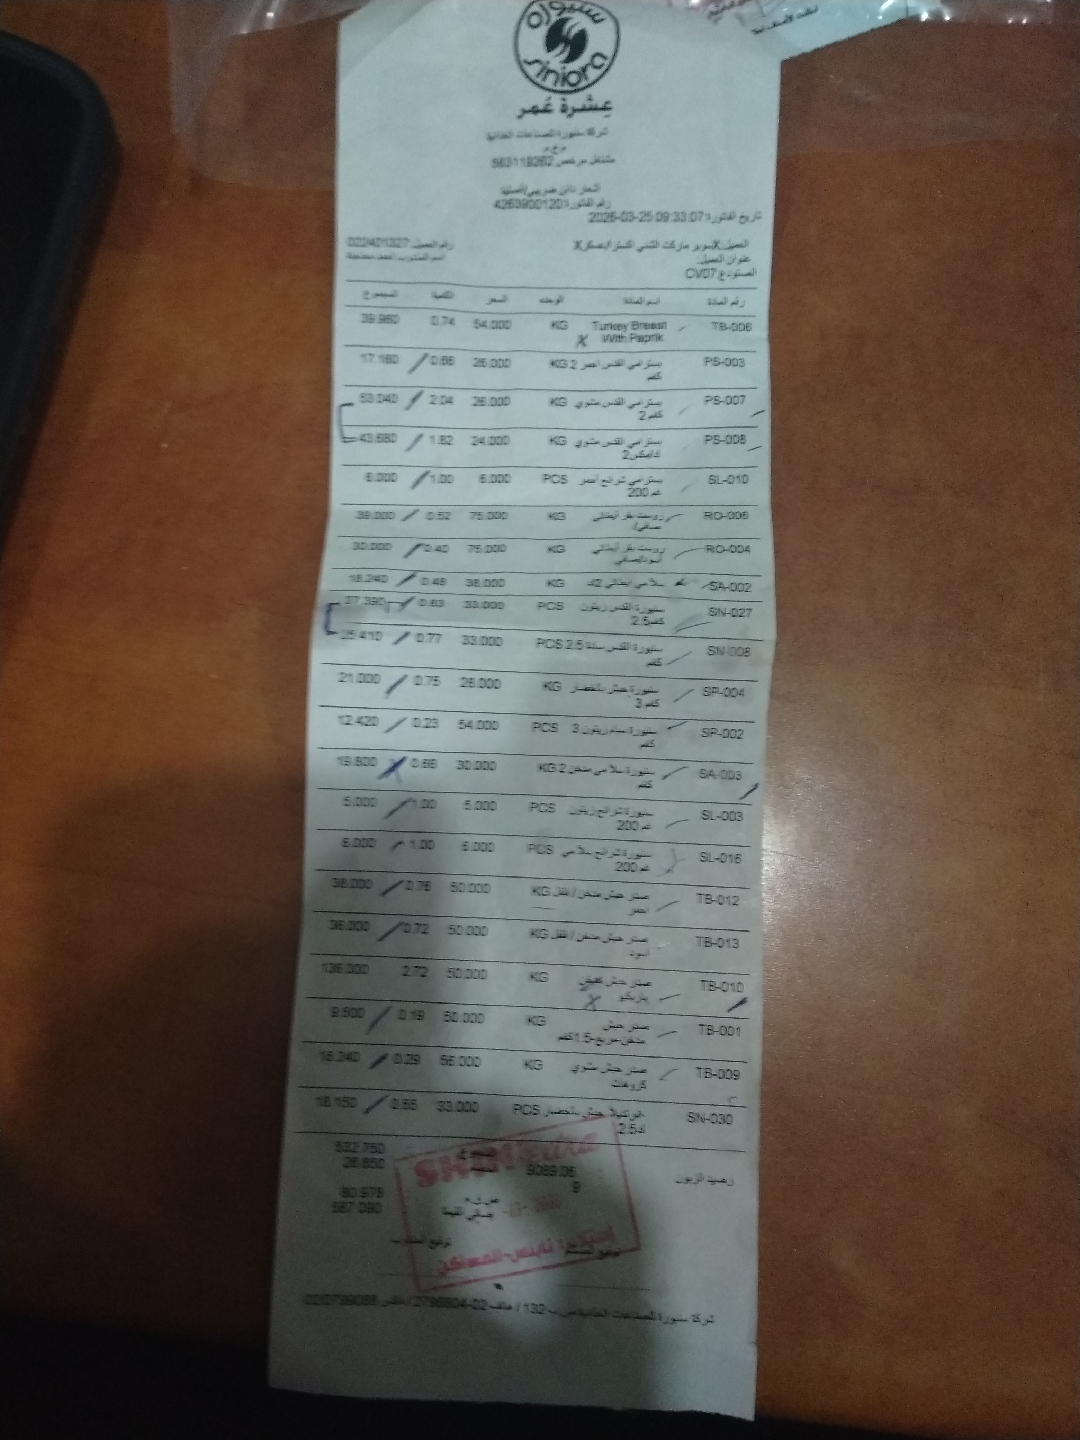 سنيورة
siniora
عشرة عمر
شركة سنيورة للصناعات الغذائية
م.خ.م
مشتغل مرخص 563119262
اشعار دائن ضريبي/أصلية
رقم الفاتورة: 4263900120
تاريخ الفاتورة: 2026-03-25 09:33:07
العميل: Xسوبر ماركت الشني اكسترا/عسكرX رقم العميل: 022/401327
عنوان العميل:
المستودع: CV07
رقم المادة اسم المادة الوحدة السعر الكمية المجموع
TB-006 Turkey Breast KG 54.000 0.74 39.960
With Paprik
PS-003 بسترامي القدس احمر 2 KG 26.000 0.66 17.160
كغم
PS-007 بسترامي القدس مشوي KG 26.000 2.04 53.040
كغم 2
PS-008 بسترامي القدس مشوي KG 24.000 1.82 43.680
SL-010 بسترامي شرائح احمر PCS 6.000 1.00 6.000
200 غم
RO-006 روست بقر ايطالي KG 75.000 0.52 39.000
RO-004 روست بقر ايطالي KG 75.000 0.40 30.000
SA-002 سلامي ايطالي KG 38.000 0.48 18.240
SN-027 سنيورة القدس زيتون PCS 33.000 0.83 27.390
2.5كغم
SN-008 سنيورة القدس سادة 2.5 PCS 33.000 0.77 25.410
كغم
SP-004 سنيورة حبش بالخضار KG 28.000 0.75 21.000
كغم 3
SP-002 سنيورة زيتون 3 PCS 54.000 0.23 12.420
كغم
SA-003 سنيورة سلامي مدخن 2 KG 30.000 0.66 19.800
كغم
SL-003 سنيورة شرائح زيتون PCS 5.000 1.00 5.000
200 غم
SL-016 سنيورة شرائح سلامي PCS 6.000 1.00 6.000
200 غم
TB-012 صدر حبش مدخن / فلفل KG 50.000 0.76 38.000
احمر
TB-013 صدر حبش مدخن / فلفل KG 50.000 0.72 36.000
اسود
TB-010 صدر حبش KG 50.000 2.72 136.000
باربكيو
TB-001 صدر حبش KG 50.000 0.19 9.500
مدخن-مربع-1.5كغم
TB-009 صدر حبش مشوي KG 56.000 0.29 16.240
SN-030 حبش بالخضار PCS 33.000 0.55 18.150
2.5
532.750
26.650
رصيد الزبون 9089.06
9
80.978
صافي القيمة 587.090
توقيع المندوب
نابلس-المساكن
شركة سنيورة للصناعات الغذائية ص.ب 132 / هاتف 02-2796804 / فاكس